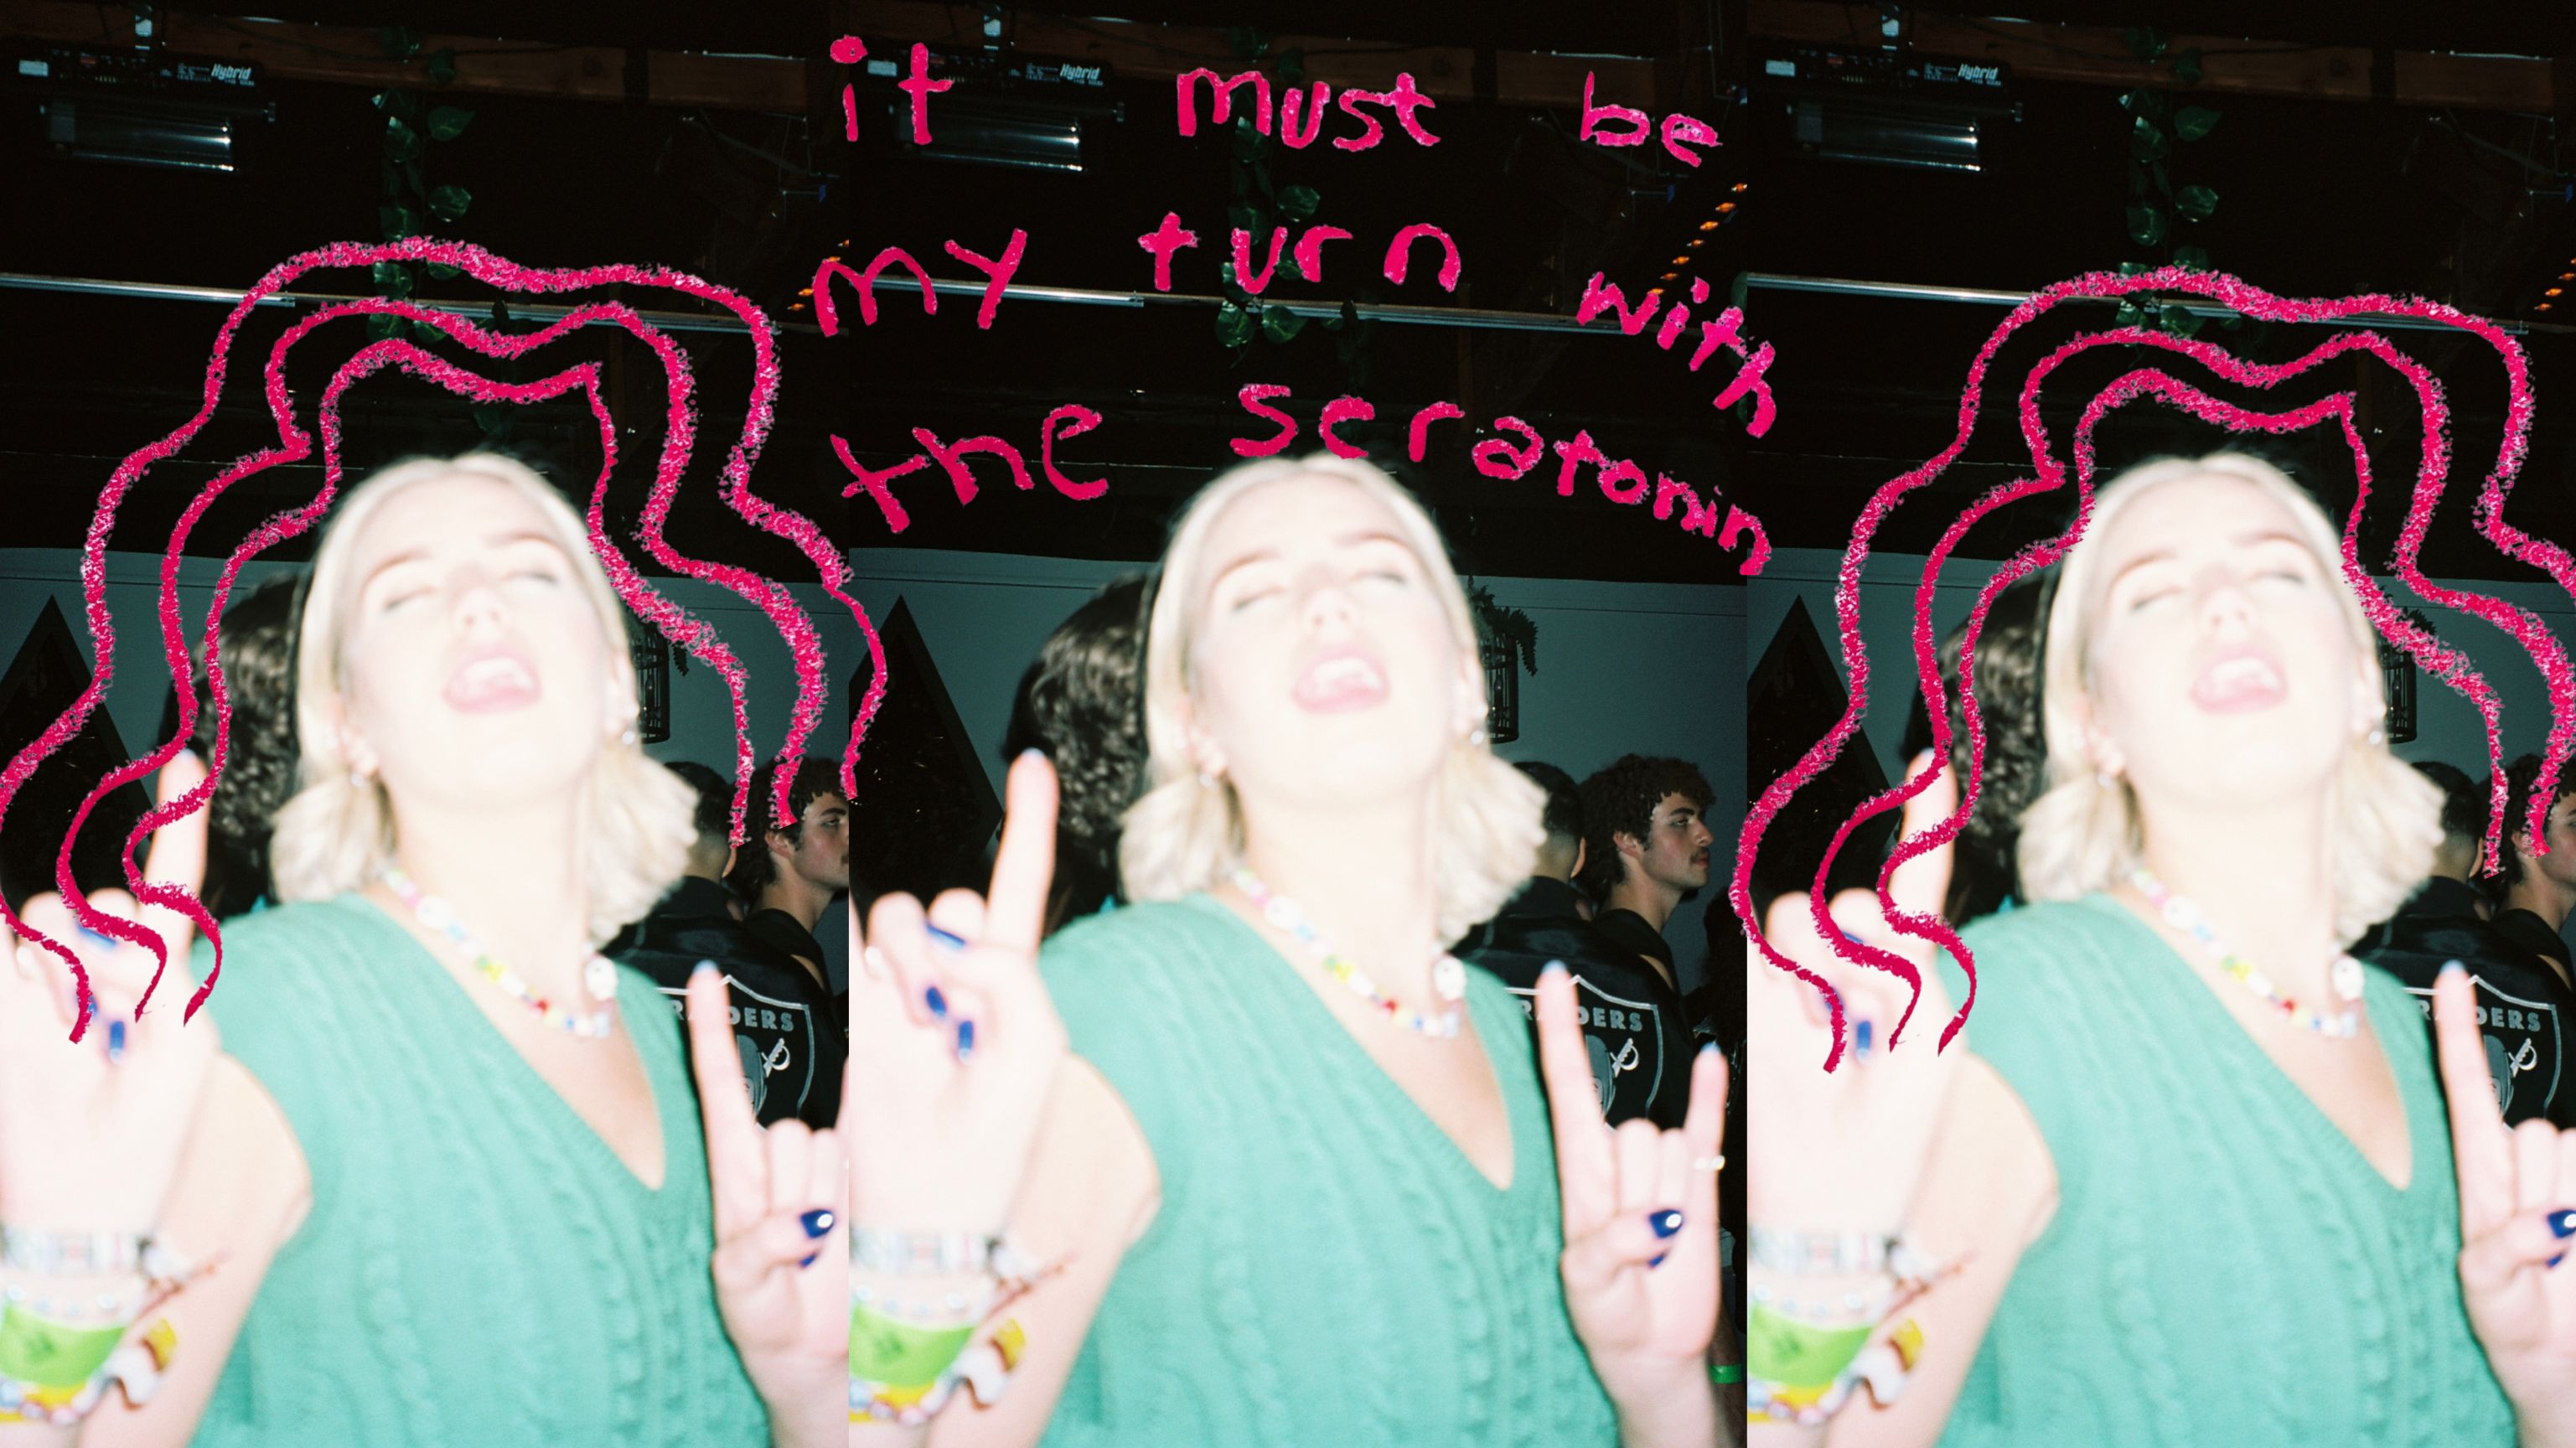 it must be
my turn with
the seratonin
Hybrid
Hybrid
Hybrid
RAIDERS
RAIDERS
RAIDERS